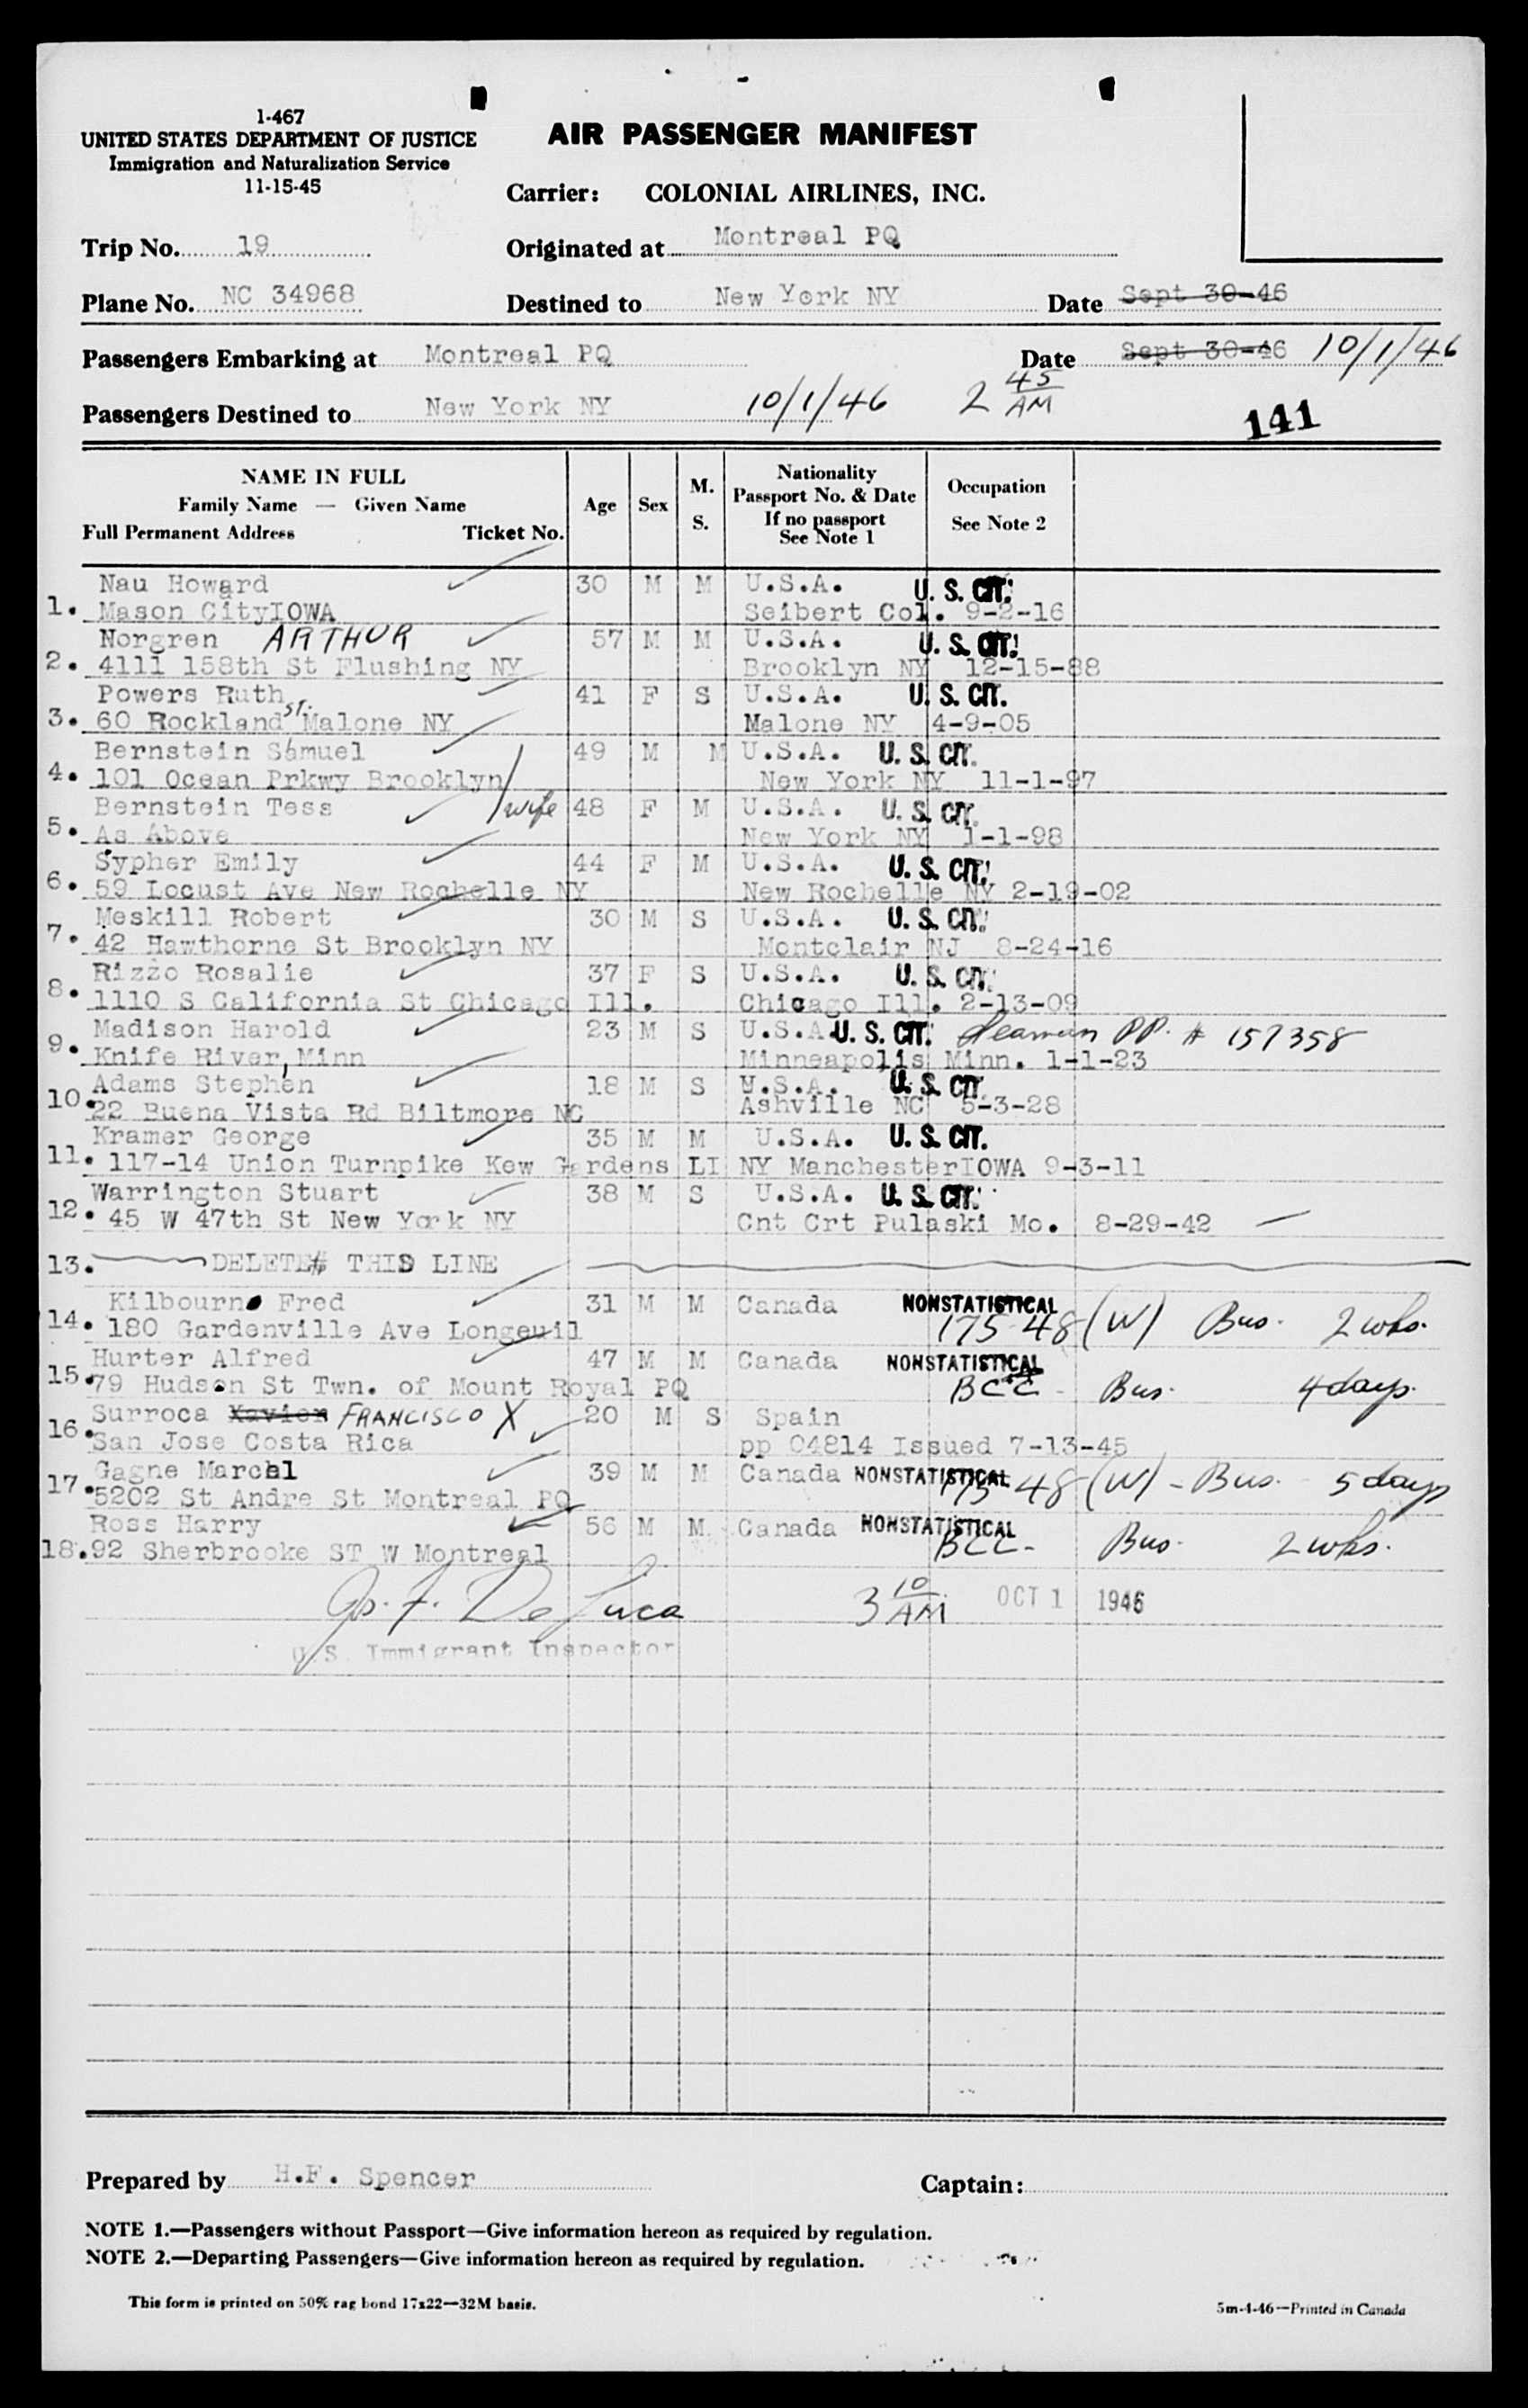 1-467
UNITED STATES DEPARTMENT OF JUSTICE
Immigration and Naturalization Service
11-15-45
AIR PASSENGER MANIFEST
Carrier: COLONIAL AIRLINES, INC.
Trip No. 19 Originated at Montreal PQ
Plane No. NC 34968 Destined to New York NY Date Sept 30-46
Passengers Embarking at Montreal PQ Date Sept 30-46 10/1/46
Passengers Destined to New York NY 10/1/46 2 45 AM
141
NAME IN FULL
Family Name — Given Name
Full Permanent Address Ticket No.
Age
Sex
M.
S.
Nationality
Passport No. & Date
If no passport
See Note 1
Occupation
See Note 2
Nau Howard 30 M M U.S.A. U. S. CIT.
1. Mason CityIOWA Seibert Col. 9-2-16
Norgren ARTHUR 57 M M U.S.A. U. S. CIT.
2. 4111 158th St Flushing NY Brooklyn NY 12-15-88
Powers Ruth 41 F S U.S.A. U. S. CIT.
3. 60 Rockland St. Malone NY Malone NY 4-9-05
Bernstein Samuel 49 M M U.S.A. U. S. CIT.
4. 101 Ocean Prkwy Brooklyn New York NY 11-1-97
Bernstein Tess wife 48 F M U.S.A. U. S. CIT.
5. As Above New York NY 1-1-98
Sypher Emily 44 F M U.S.A. U. S. CIT.
6. 59 Locust Ave New Rochelle NY New Rochelle NY 2-19-02
Meskill Robert 30 M S U.S.A. U. S. CIT.
7. 42 Hawthorne St Brooklyn NY Montclair NJ 8-24-16
Rizzo Rosalie 37 F S U.S.A. U. S. CIT.
8. 1110 S California St Chicago Ill. Chicago Ill. 2-13-09
Madison Harold 23 M S U.S.A U. S. CIT. Seaman PP. # 157358
9. Knife River, Minn Minneapolis Minn. 1-1-23
Adams Stephen 18 M S U.S.A. U. S. CIT.
10. 22 Buena Vista Rd Biltmore NC Ashville NC 5-3-28
Kramer George 35 M M U.S.A. U. S. CIT.
11. 117-14 Union Turnpike Kew Gardens LI NY ManchesterIOWA 9-3-11
Warrington Stuart 38 M S U.S.A. U. S. CIT.
12. 45 W 47th St New York NY Cnt Crt Pulaski Mo. 8-29-42
13. DELETE THIS LINE
Kilbourne Fred 31 M M Canada NONSTATISTICAL
14. 180 Gardenville Ave Longeuil 175-48 (W) Bus. 2 wks.
Hurter Alfred 47 M M Canada NONSTATISTICAL
15. 79 Hudson St Twn. of Mount Royal PQ BCC - Bus. 4 days.
Surroca Xavier FRANCISCO X 20 M S Spain
16. San Jose Costa Rica pp 04814 Issued 7-13-45
Gagne Marcel 39 M M Canada NONSTATISTICAL 175-48 (W) - Bus. 5 days
17. 5202 St Andre St Montreal PQ
Ross Harry 56 M M Canada NONSTATISTICAL
18. 92 Sherbrooke ST W Montreal BCC - Bus. 2 wks.
Jos. F. De Luca 3 10 AM OCT 1 1946
U.S. Immigrant Inspector
Prepared by H.F. Spencer Captain:
NOTE 1.—Passengers without Passport—Give information hereon as required by regulation.
NOTE 2.—Departing Passengers—Give information hereon as required by regulation.
This form is printed on 50% rag bond 17x22—32M basis.
5m-4-46—Printed in Canada